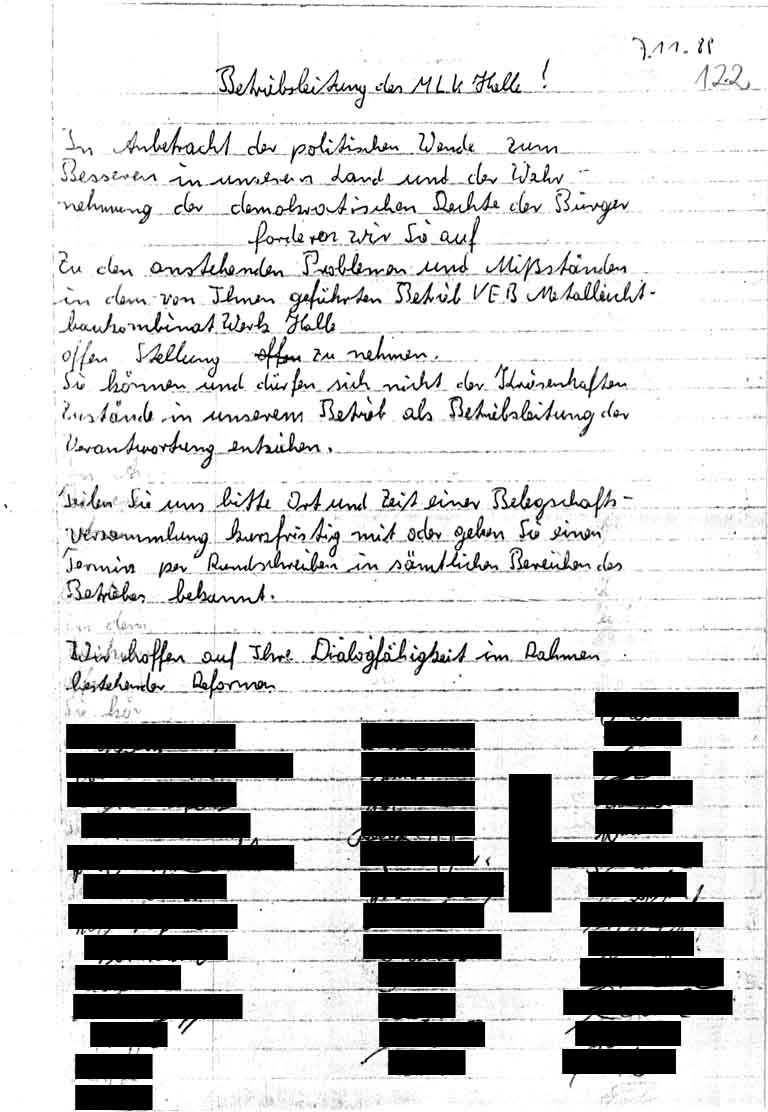 7.11.89
122
Betriebsleitung des MLK Halle!
In Anbetracht der politischen Wende zum
Besseren in unserem Land und der Wahr-
nehmung der demokratischen Rechte der Bürger
forderen wir Sie auf
Zu den anstehenden Problemen und Mißständen
in dem von Ihnen geführten Betrieb VEB Metalleicht-
baukombinat Werk Halle
offen Stellung offen zu nehmen.
Sie können und dürfen sich nicht der Kriesenhaften
Zustände in unserem Betrieb als Betriebsleitung der
Verantwortung entziehen.
Teilen Sie uns bitte Ort und Zeit einer Belegschafts-
versammlung kurzfristig mit oder geben Sie einen
Termin per Rundschreiben in sämtlichen Bereichen des
Betriebes bekannt.
Wir hoffen auf Ihre Dialogfähigkeit im Rahmen
bestehender Reformen